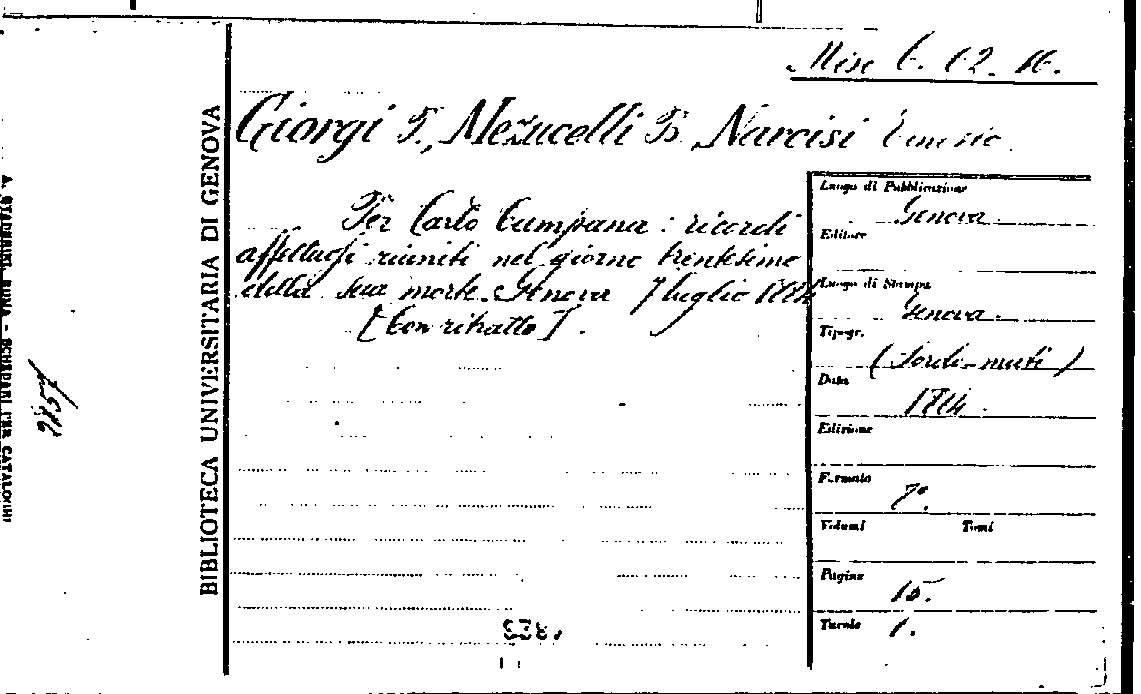 Misc 6. 12. 16.
Giorgi F., Mezucelli B., Narcisi
Per Carlo Campana: ricordi
affettuosi riuniti nel giorno trentesimo
della sua morte. Genova 7 luglio
[Con ritratto].
Luogo di Pubblicazione
Genova.
Editore
Luogo di Stampa
Genova.
Tipogr.
(Sordi-muti)
Data
Edizione
Formato
Volumi Tomi
Pagine
15.
Tavole
1.
BIBLIOTECA UNIVERSITARIA DI GENOVA
A. STADERINI, ROMA - SCHEDARI PER CATALOGHI